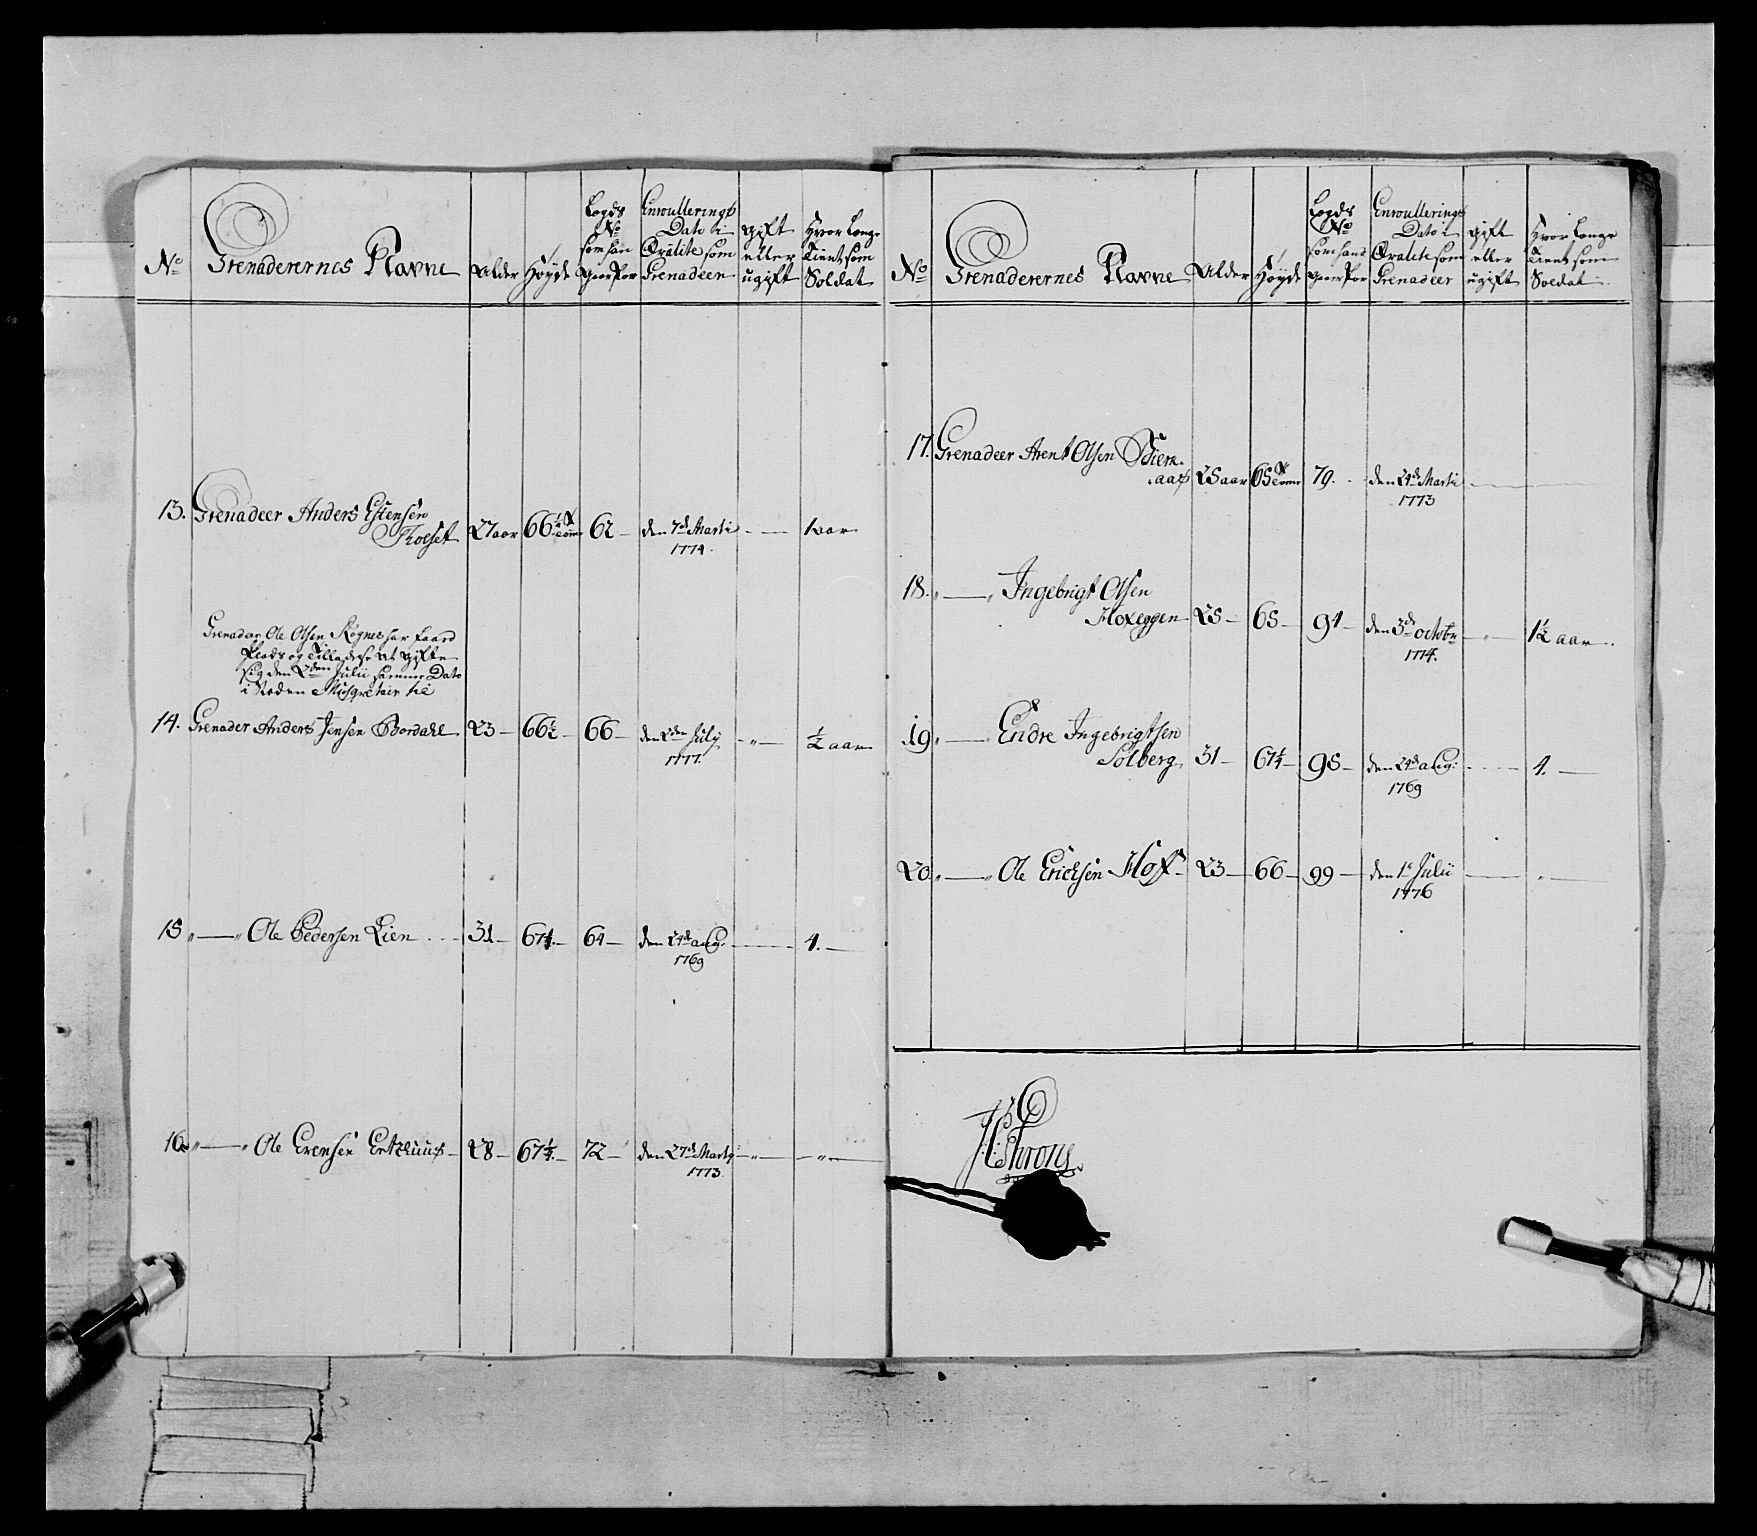 No
Grenaderernes Navne
Alder
Høyde
Lægds
No
som han
giør for
Enroullerings
Dato i
Qvalite som
Grenadeer
gift
eller
ugift
Hvor Længe
Tient som
Soldat
13. Grenadeer Anders Estensen
Tholset 27 aar 66 1/4 62 — den 7de Marti — 1 aar
1774.
Grenadeer Ole Olsen Rognes har faaed
Plads og Tilladelse at gifte
sig den 2den Julii samme Dato
i Steden Musqueteir til
14. Grenader Anders Jensen Bordahl 23 — 66 1/2 — 66 — den 2den July — „ — 1/2 aar
1777.
15 „ — „ Ole Pedersen Lien 31 — 67 1/4. — 64 — den 24de aug: — 4. —
1769
16 „ — „ Ole Erensen 28 — 67 1/4. — 72 — den 27de Marty — „ — „ —
1773
No
Grenaderernes Navne
Alder
Høyde
Lægds
No
som hand
giør for
Enroullerings
Dato i
Qvalite som
Grenadeer
gift
eller
ugift
Hvor Længe
Tient som
Soldat
17. Grenadeer Arent Olsen Bierk-
aas 25 aar 65 79. den 24de Marti
1773
18. „ — „ Ingebrigt Olsen
Hoxeggen 25 — 65 — 91 — den 3de octobr — „ — 1 1/2 aar.
1774.
19 „ — Endre Ingebrigtsen
Solberg 31 — 67 1/4 — 95 — den 24de aug: — 4. —
1769
20. „ — „ Ole Ericksen Hoff 23 — 66 — 99 — den 1te Julii — „ —
1776